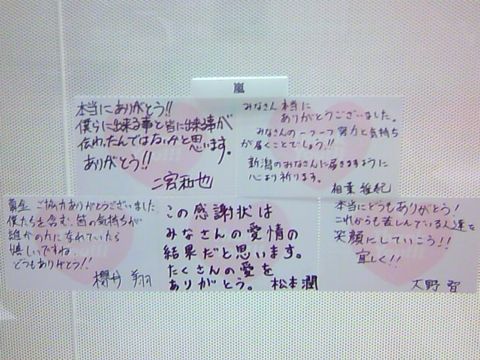 嵐
本当にありがとう!!
僕らに出来る事と皆に出来る事が
伝わったんではないかと思います。
ありがとう!!
二宮和也
みなさん本当に
ありがとうございました。
みなさんの一つ一つ努力と気持ち
が届くことでしょう!!
新潟のみなさんに届きますように
心より祈ります。
相葉雅紀
募金ご協力ありがとうございました
僕たちを含む、皆の気持ちが
誰かの力になれていたら
嬉しいですね。
どうもありがとう!!
櫻井翔
この感謝状は
みなさんの愛情の
結果だと思います。
たくさんの愛を
ありがとう。松本潤
本当にどうもありがとう!
これからも苦しんでいる人達を
笑顔にしていこう!!
宜しく!!
大野智